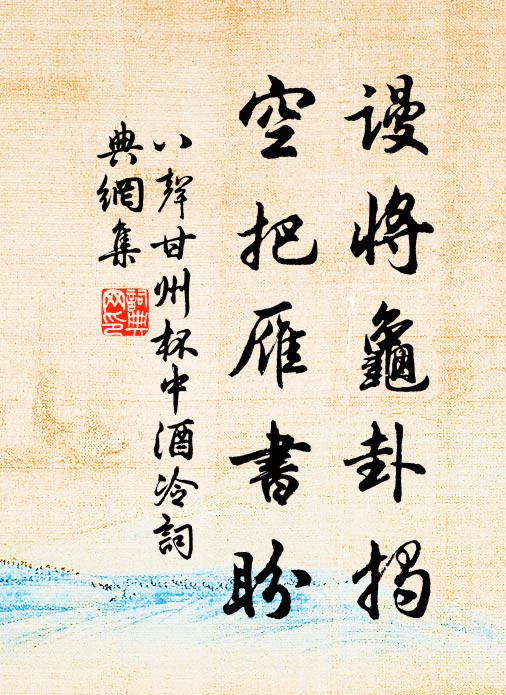 謾將龜卦揭
空把雁書盼
八聲甘州杯中酒冷詞
典網集
詞典
网印